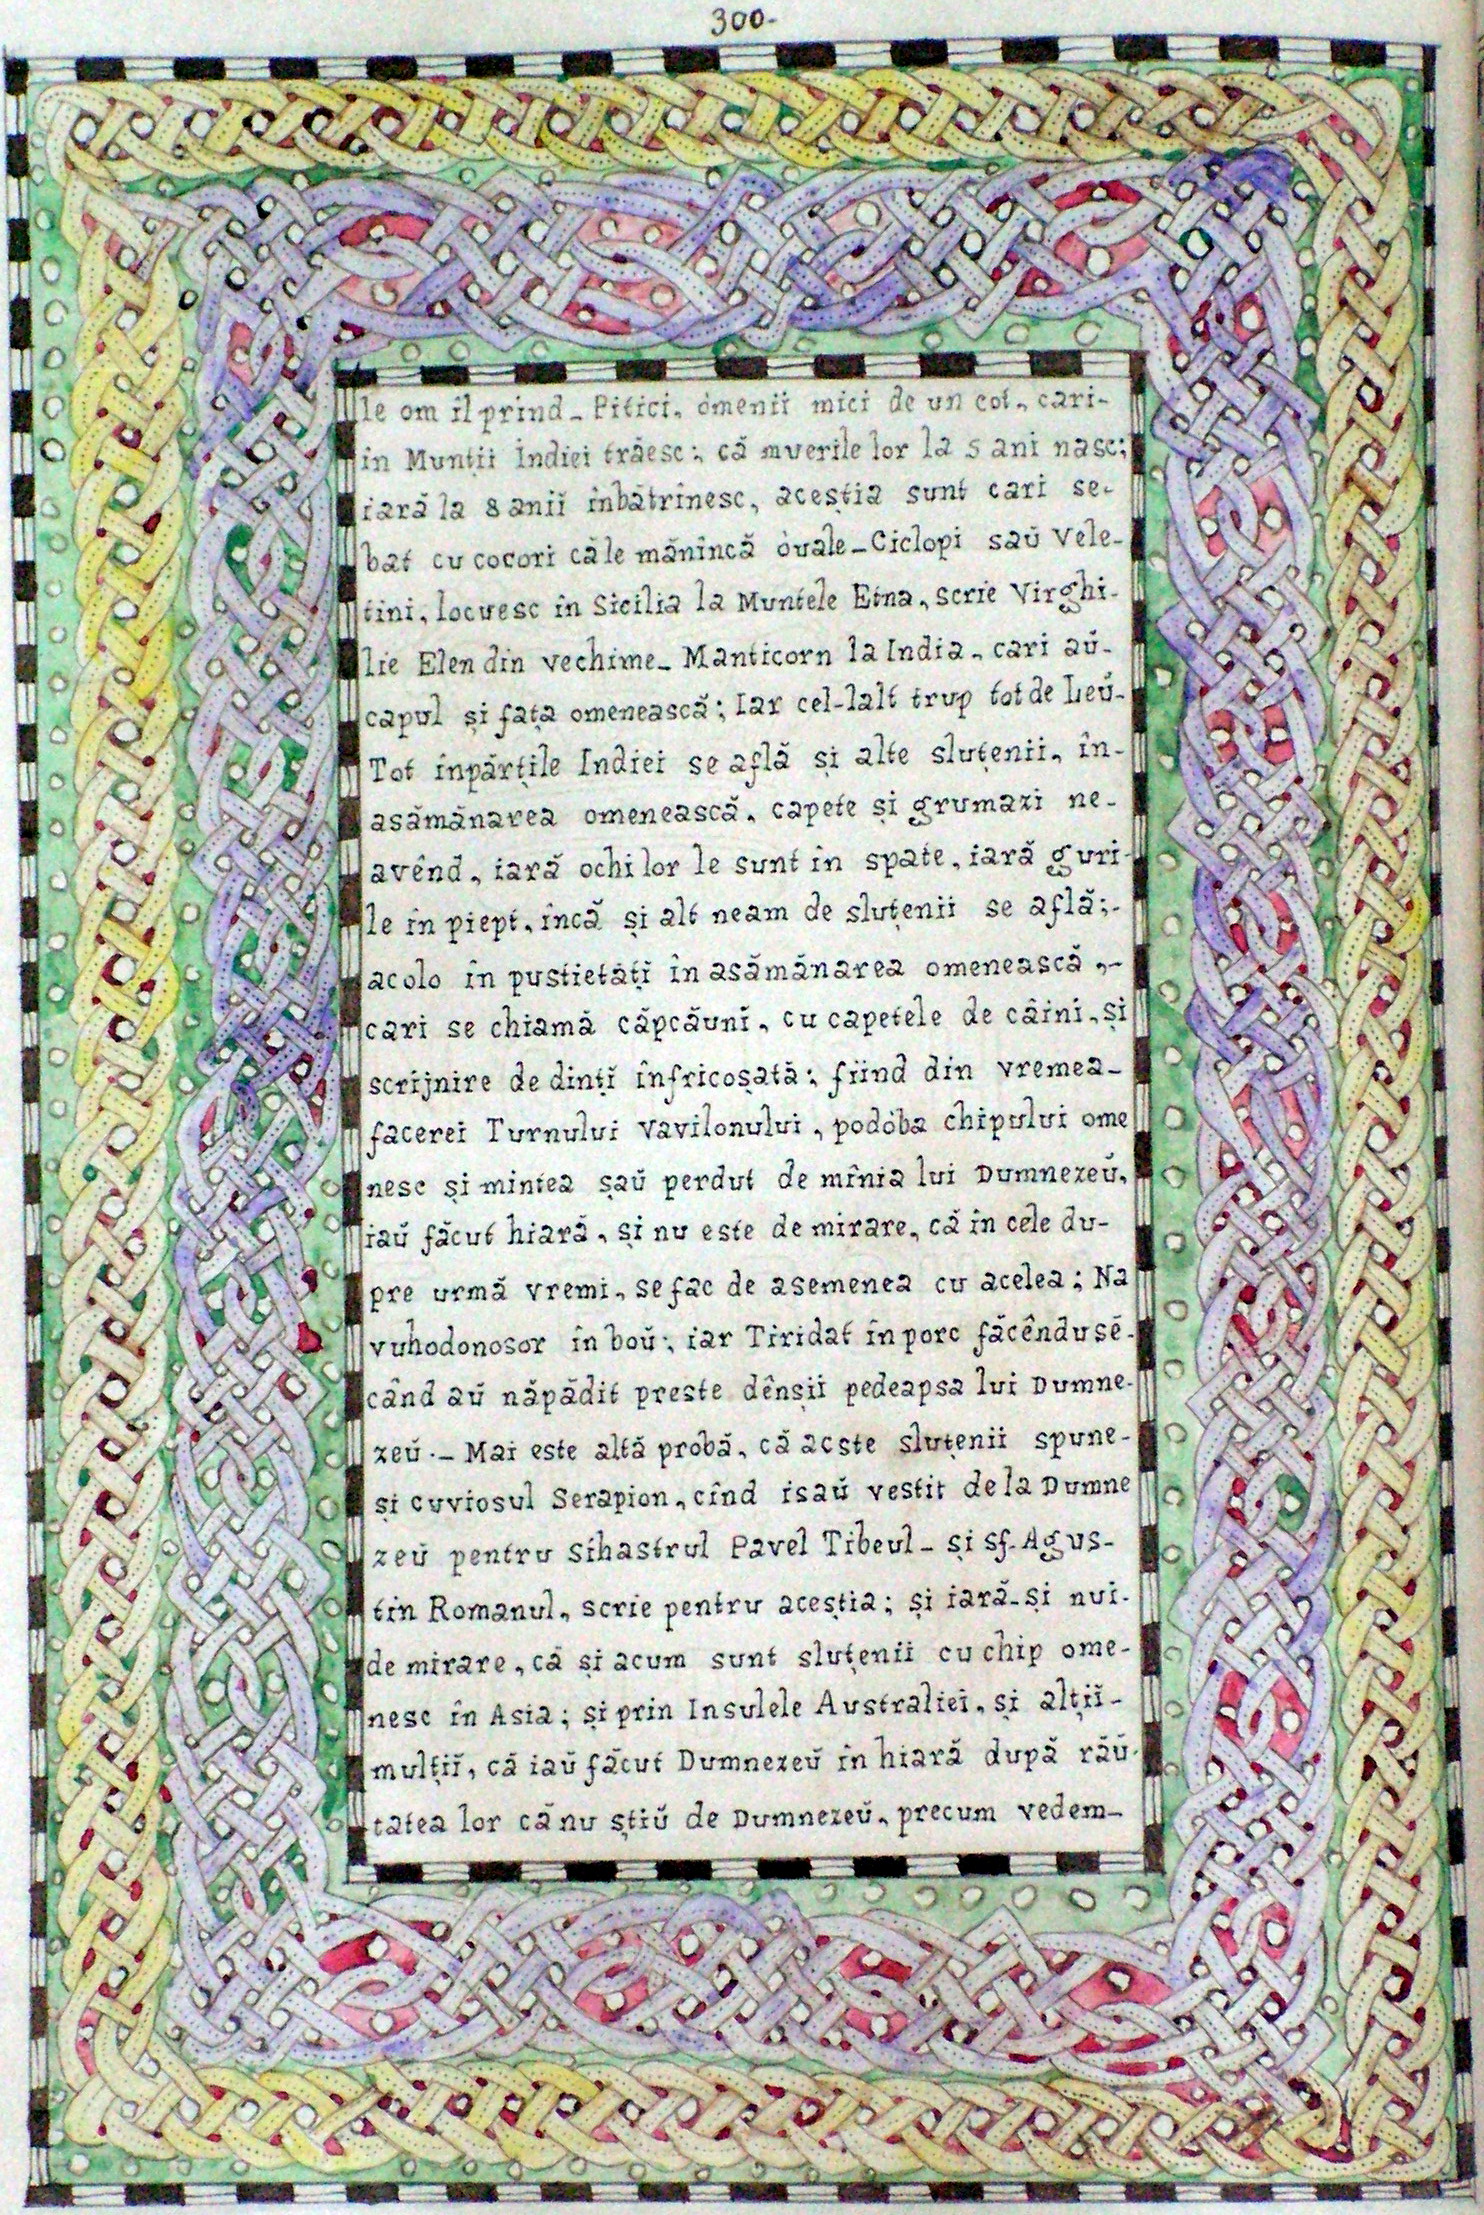 300-
le om îl prind_ Pitici, ómenii mici de un cot, cari-
in Munții Indiei trăesc; că muerile lor la 5 ani nasc;
iară la 8 anii inbătrinesc, aceștia sunt cari se-
bat cu cocori căle mănîncă óuale_ Ciclopi saŭ Vele-
tini, locuesc în Sicilia la Muntele Etna, scrie Virghi-
lie Elen din vechime_ Manticorn la India, cari aŭ-
capul și fața omenească; Iar cel-lalt trup tot de Leŭ-
Tot înpărțile Indiei se află și alte sluțenii, în-
asămănarea omenească, capete și grumazi ne-
avênd, iară ochilor le sunt în spate, iară guri-
le în piept, încă și alt neam de sluțenii se află;-
acolo în pustietățĭ în asămănarea omenească,-
cari se chiamă căpcăunĭ, cu capetele de câini, și
scrijnire de dințĭ înfricoșată; fiind din vremea-
facerei Turnului Vavilonului, podóba chipului ome
nesc și mintea șaŭ perdut de mînia lui Dumnezeŭ,
iaŭ făcut hiară, și nu este de mirare, că în cele du-
pre urmă vremi, se fac de asemenea cu acelea; Na
vuhodonosor în boŭ; iar Tiridat în porc făcêndusĕ-
când aŭ năpădit preste dênșii pedeapsa lui Dumne-
zeŭ.- Mai este altă probă, că acste sluțenii spune-
și cuviosul Serapion, cînd isaŭ vestit de la Dumne
zeŭ pentru sihastrul Pavel Tibeul_ și sf. Agus-
tin Romanul, scrie pentru aceștia; și iară-și nui-
de mirare, că și acum sunt sluțenii cu chip ome-
nesc în Asia; și prin Insulele Australiei, și alțiĭ-
mulțiĭ, că iaŭ făcut Dumnezeŭ în hiară după răŭ-
tatea lor că nu știŭ de Dumnezeŭ, precum vedem-